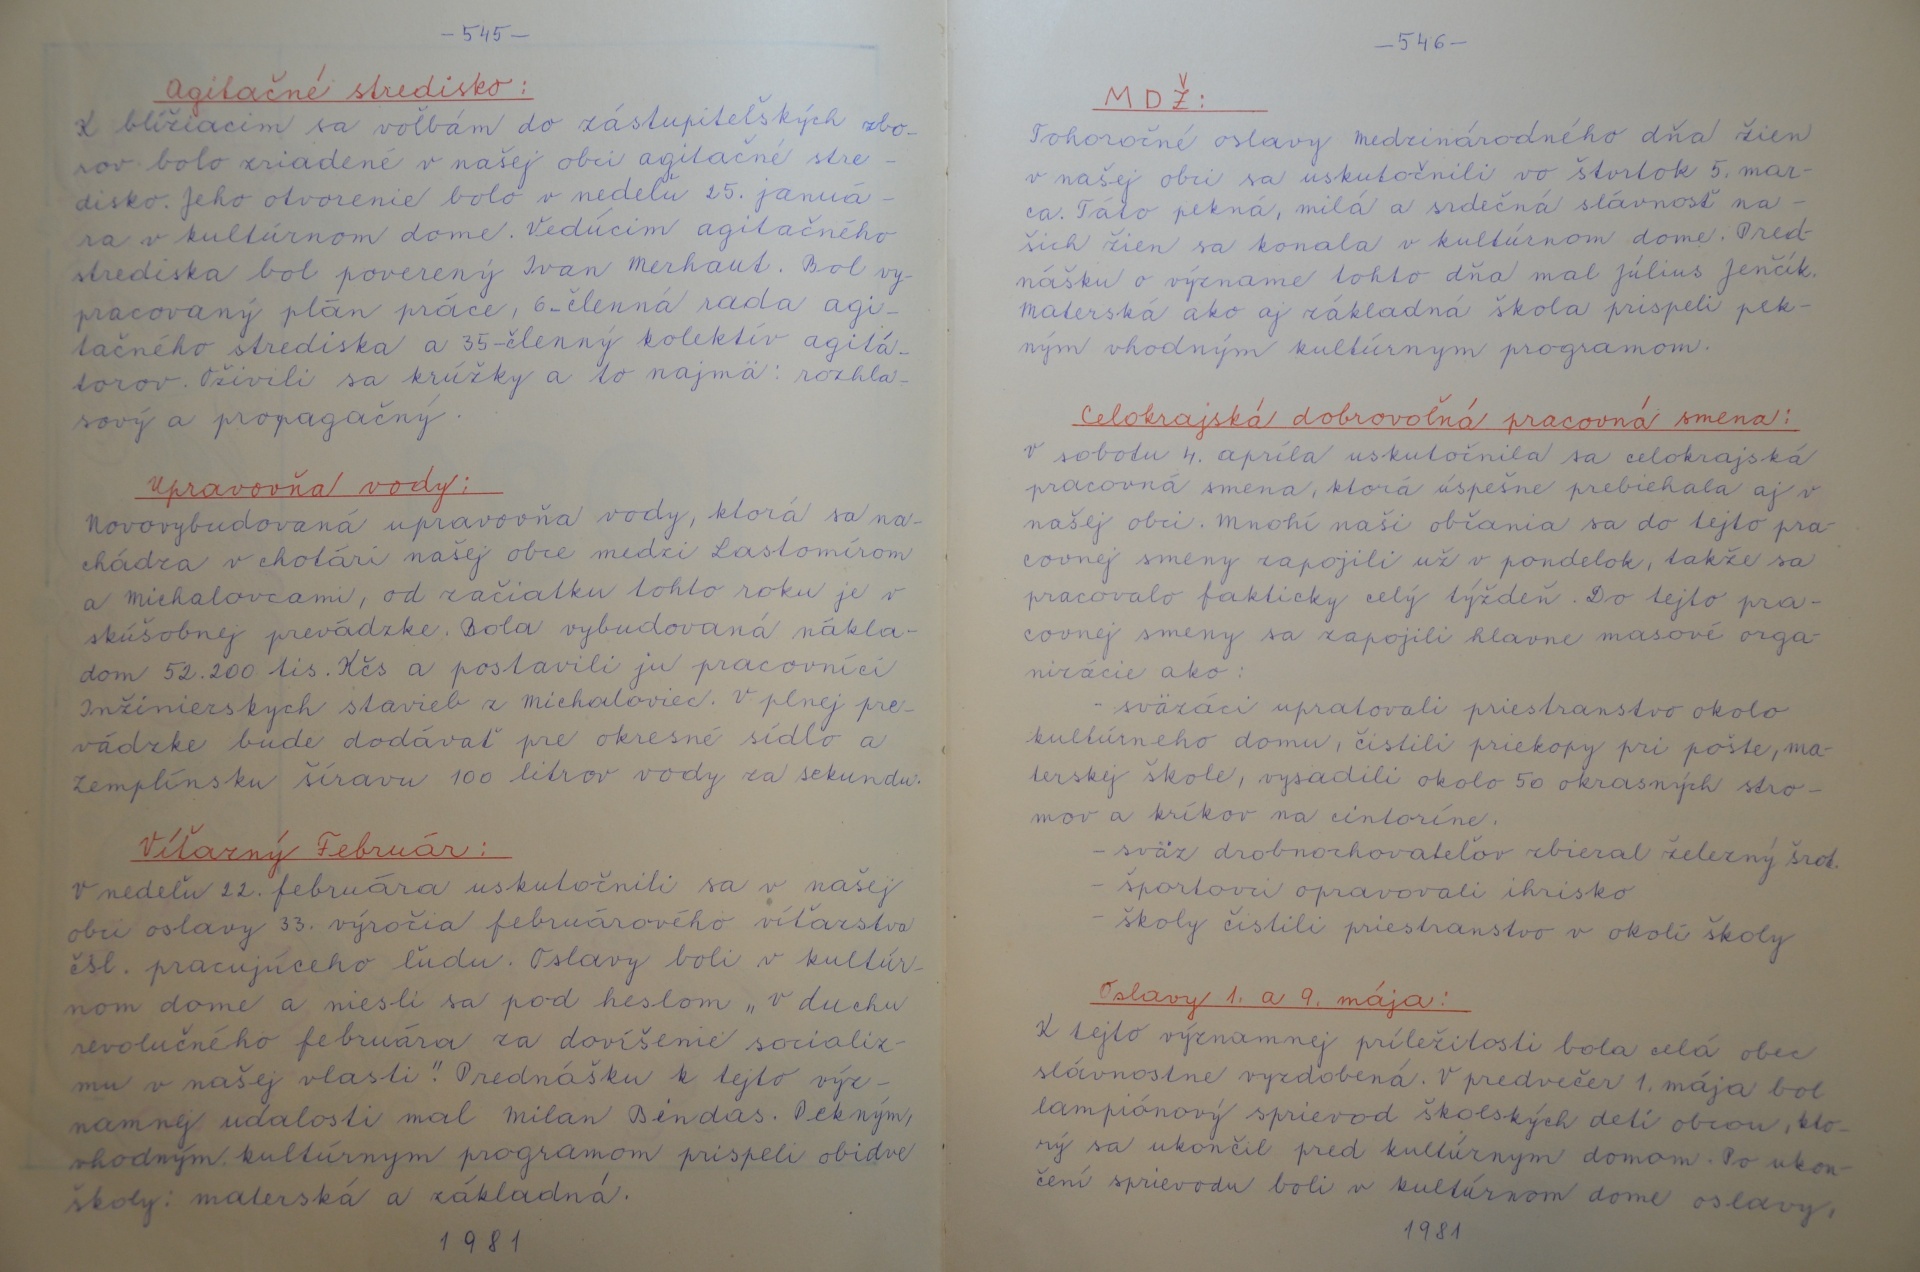 —545—
Agitačné stredisko:
K blížiacim sa voľbám do zástupiteľských zbo-
rov bolo zriadené v našej obci agitačné stre-
disko. Jeho otvorenie bolo v nedeľu 25. januá-
ra v kultúrnom dome. Vedúcim agitačného
strediska bol poverený Ivan Merhaut. Bol vy-
pracovaný plán práce, 6-členná rada agi-
tačného strediska a 35-členný kolektív agitá-
torov. Oživili sa krúžky a to najmä: rozhla-
sový a propagačný.
Upravovňa vody:
Novovybudovaná upravovňa vody, ktorá sa na-
chádza v chotári našej obce medzi Lastomírom
a Michalovcami, od začiatku tohto roku je v
skúšobnej prevádzke. Bola vybudovaná nákla-
dom 52.200 tis. Kčs a postavili ju pracovníci
Inžinierskych stavieb z Michaloviec. V plnej pre-
vádzke bude dodávať pre okresné sídlo a
Zemplínsku šíravu 100 litrov vody za sekundu.
Víťazný Február:
V nedeľu 22. februára uskutočnili sa v našej
obci oslavy 33. výročia februárového víťazstva
čsl. pracujúceho ľudu. Oslavy boli v kultúr-
nom dome a niesli sa pod heslom „V duchu
revolučného februára za dovíšenie socializ-
mu v našej vlasti". Prednášku k tejto výz-
namnej udalosti mal Milan Bindas. Pekným,
vhodným kultúrnym programom prispeli obidve
školy: materská a základná.
1981
—546—
MDŽ:
Tohoročné oslavy Medzinárodného dňa žien
v našej obci sa uskutočnili vo štvrtok 5. mar-
ca. Táto pekná, milá a srdečná slávnosť na-
šich žien sa konala v kultúrnom dome. Pred-
nášku o význame tohto dňa mal Július Jenčík.
Materská ako aj základná škola prispeli pek-
ným vhodným kultúrnym programom.
Celokrajská dobrovoľná pracovná smena:
V sobotu 4. apríla uskutočnila sa celokrajská
pracovná smena, ktorá úspešne prebiehala aj v
našej obci. Mnohí naši občania sa do tejto pra-
covnej smeny zapojili už v pondelok, takže sa
pracovalo fakticky celý týždeň. Do tejto pra-
covnej smeny sa zapojili hlavne masové orga-
nizácie ako:
- sväzáci upratovali priestranstvo okolo
kultúrneho domu, čistili priekopy pri pošte, ma-
terskej škole, vysadili okolo 50 okrasných stro-
mov a kríkov na cintoríne.
- sväz drobnochovateľov zbieral železný šrot.
- športovci opravovali ihrisko
- školy čistili priestranstvo v okolí školy
Oslavy 1. a 9. mája:
K tejto významnej príležitosti bola celá obec
slávnostne vyzdobená. V predvečer 1. mája bol
lampiónový sprievod školských detí obcou, kto-
rý sa ukončil pred kultúrnym domom. Po ukon-
čení sprievodu boli v kultúrnom dome oslavy,
1981